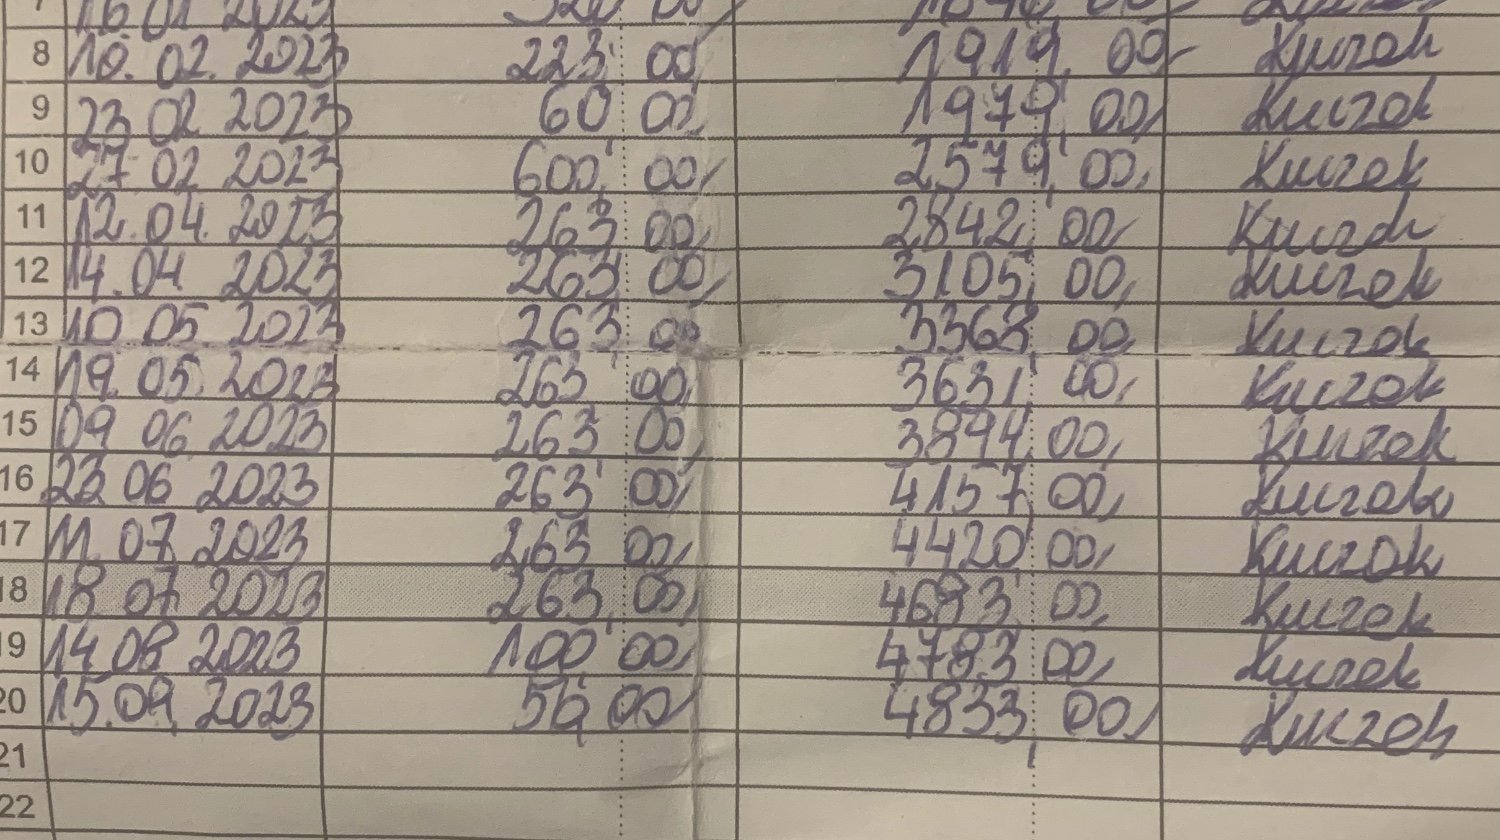 7 16.01 2023 320 00 1696 00, Kuczek
8 10. 02. 2023 223, 00, 1919, 00, Kuczek
9 23 02 2023 60 00, 1979, 00, Kuczek
10 27 02 2023 600, 00, 2579, 00, Kuczek
11 12. 04. 2023 263 00, 2842, 00, Kuczek
12 14. 04 2023 263, 00, 3105, 00, Kuczek
13 10 05. 2023 263 00 3368 00, Kuczek
14 19. 05. 2023 263 00, 3631, 00, Kuczek
15 09 06 2023 263 00, 3894, 00, Kuczek
16 23 06 2023 263 00, 4157 00, Kuczek
17 11. 07 2023 263 00, 4420 00, Kuczek
18 18. 07 2023 263, 00, 4683, 00, Kuczek
19 14 08 2023 100 00, 4783 00, Kuczek
20 15. 09 2023 50, 00 4833, 00, Kuczek
21
22